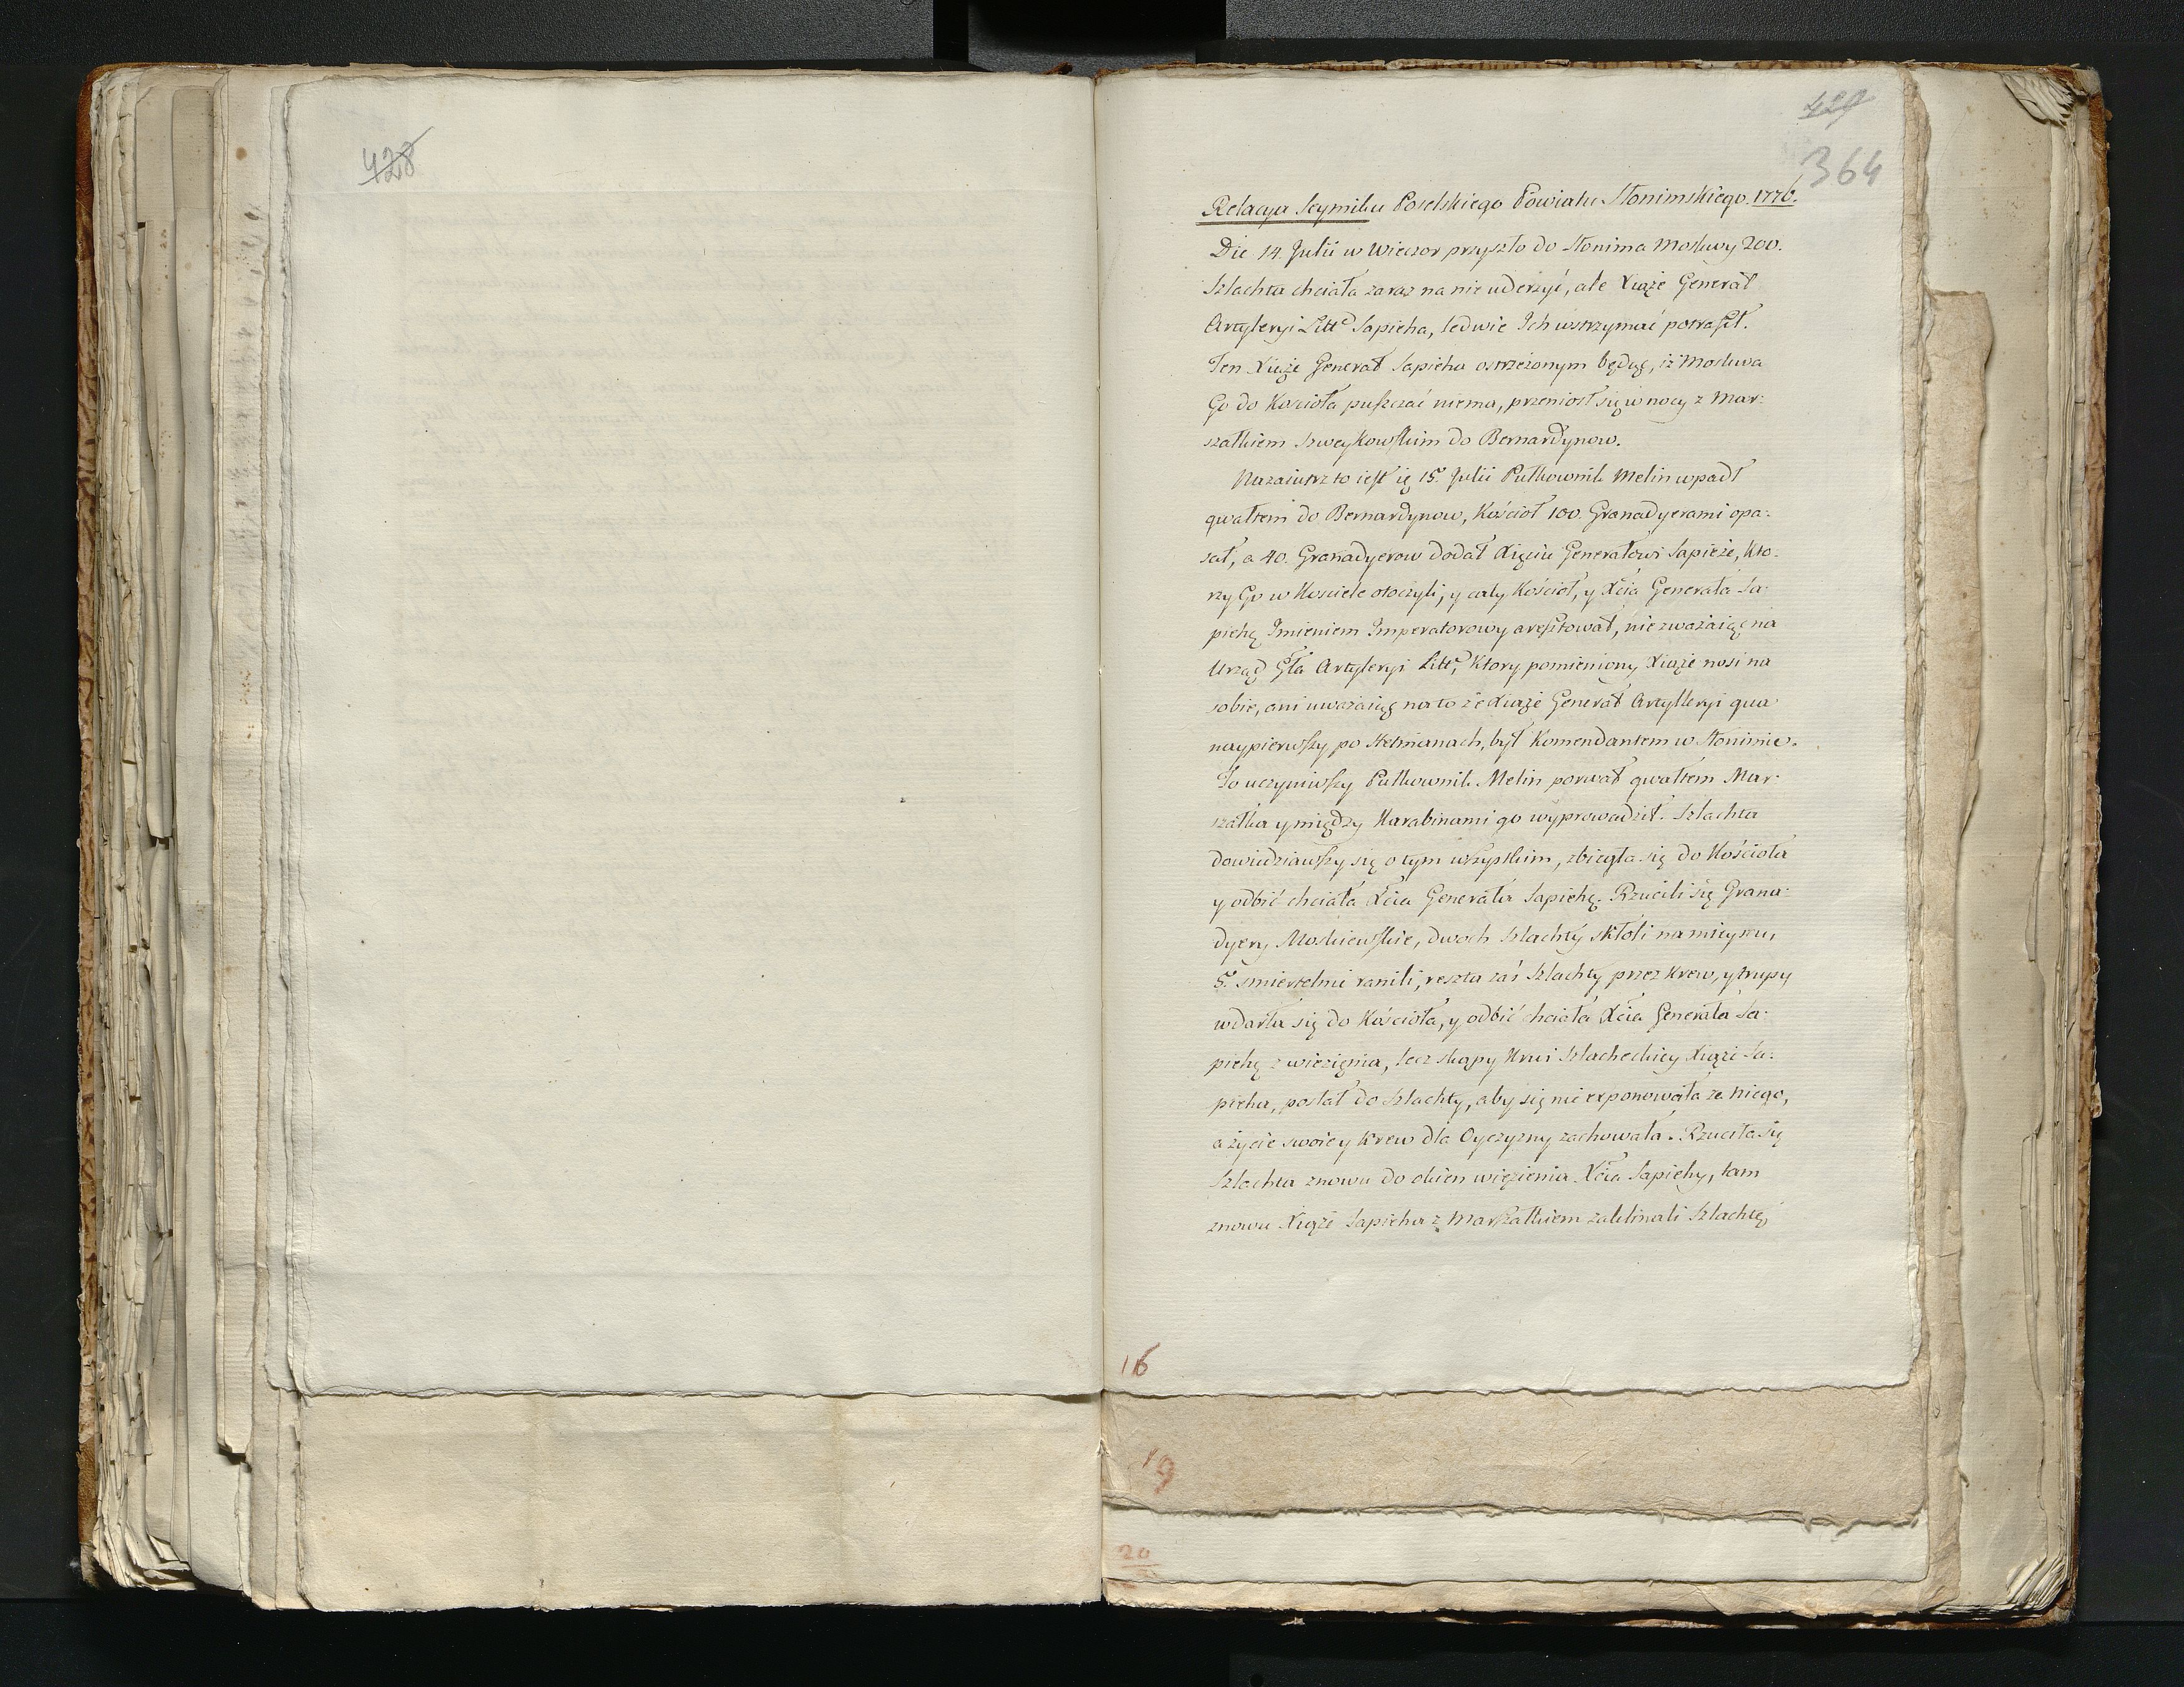 428
429
364
Relacya Seymiku Poselskiego Powiatu Słonimskiego. 1776.
Die 14. Julii w Wieczor przyszło do Słonima Moskwy 200.
Szlachta chciała zaraz na nie uderzyć, ale Xiąże Generał
Artyleryi Litt. Sapieha, ledwie Ich wstrzymać potrafił.
Ten Xiąże Generał Sapieha ostrzeżonym będąc, iż Moskwa
Go do Kościoła puszczać niema, przeniosł się w nocy z Mar:
szałkiem Szweykowskim do Bernardynow.
Nazaiutrz to iest ię 15. Julii Pułkownik Melin wpadł
gwałtem do Bernardynow, Kościoł 100. Granadyerami opa:
sał, a 40. Granadyerow dodał Xięciu Generałowi Sapieże, Kto:
rzy Go w Kościele otoczyli, y cały Kościoł, y Xcia Generała Sa:
piehę Imieniem Imperatorowy aresztował, nie zważaiąc na
Urząd Gła Artyleryi Litt. Ktory pomieniony Xiąże nosi na
sobie, ani uważaiąc na to że Xiąże Generał Artylleryi qua
naypierwszy po Hetmanach, był Komendantem w Słonimie.
To uczyniwszy Pułkownik Melin porwał gwałtem Mar:
szałka y między Karabinami go wyprowadził. Szlachta
dowiedziawszy się o tym wszystkim, zbiegła się do Kościoła
y odbić chciała Xcia Generała Sapiehę. Rzucili się Grana:
dyery Moskiewskie, dwoch Szlachty skłoli na mieyscu,
5. smiertelnie ranili, reszta zaś Szlachty przez Krew, y trupy
wdarła się do Kościoła, y odbić chciała Xcia Generała Sa:
piehę z więzienia, lecz skąpy Krwi Szlacheckiey Xiąże Sa:
pieha, posłał do Szlachty, aby się nie exponowała za niego,
a życie swoie y Krew dla Oyczyzny zachowała. Rzuciła się
Szlachta znowu do okien więzienia Xcia Sapiehy, tam
znowu Xiąże Sapieha z Marszałkiem zaklinali Szlachtę,
16
19
20